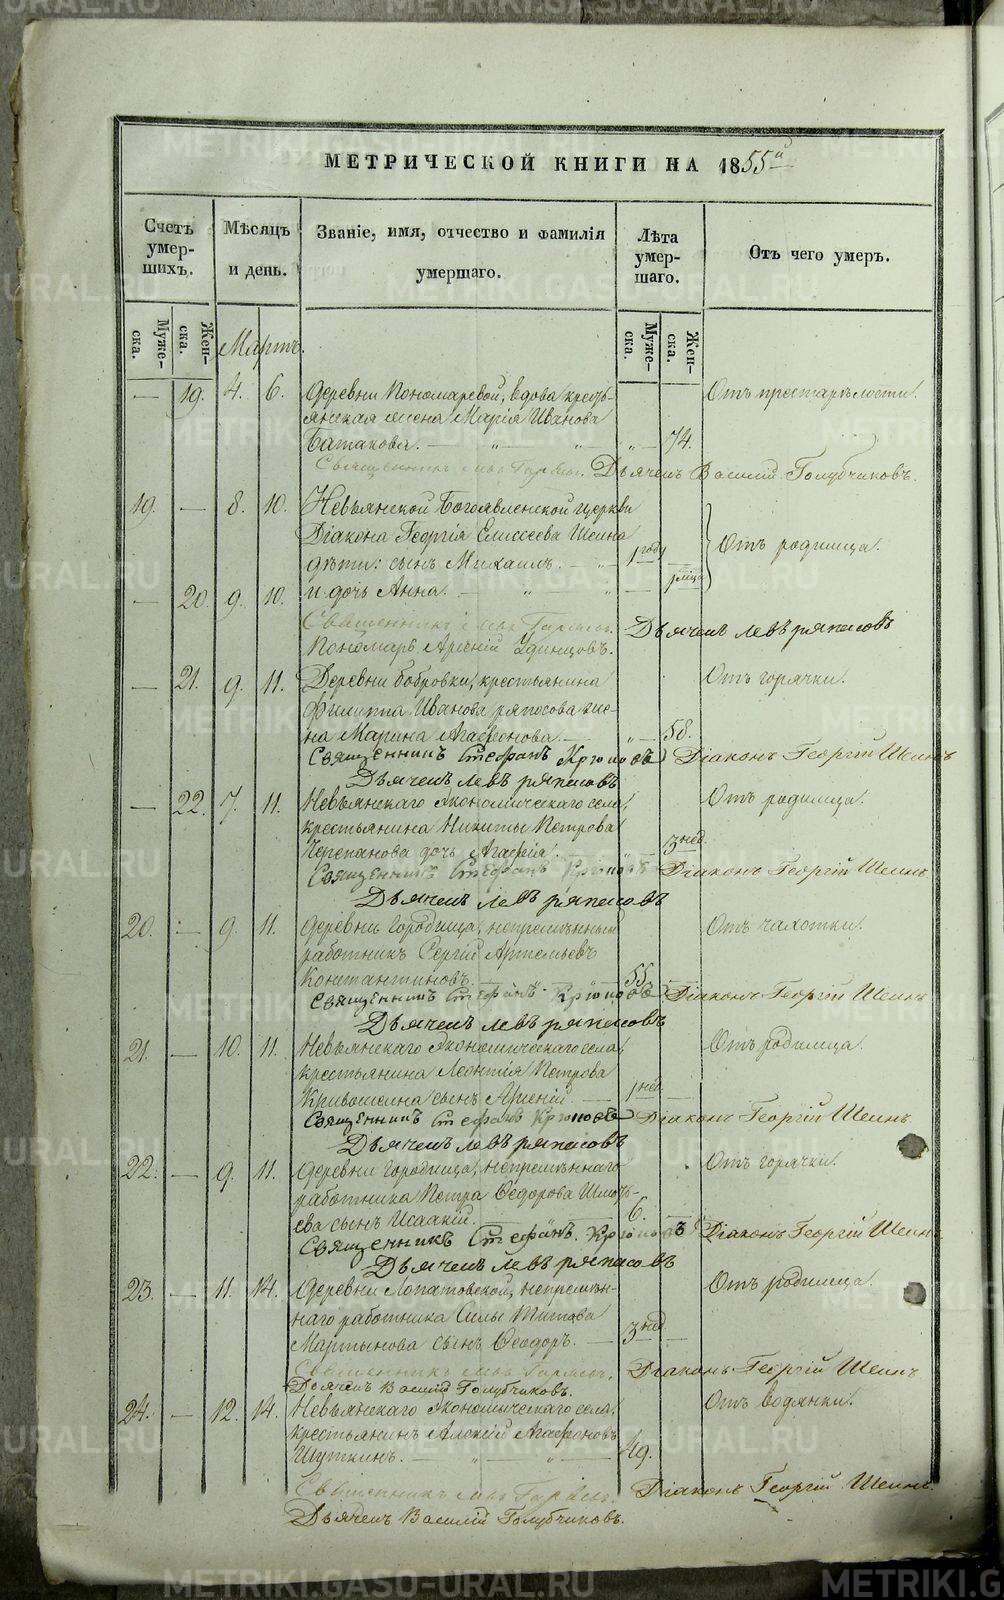 МЕТРИЧЕСКОЙ КНИГИ НА 1855й
Счетъ умер-шихъ.
Мѣсяцъ и день.
Званіе, имя, отчество и фамилія умершаго.
Лѣта умер-шаго.
Отъ чего умеръ.
Муже-ска.
Жен-ска.
Муже-ска.
Жен-ска.
Мартъ.
— 19. 4. 6. Деревни Пономаревой, вдова кресть- Отъ престарѣлости.
янская жена Марія Иванова
Батакова. — „ — „ — „ — 74.
Священникъ Дьячекъ Василій Голубчиковъ.
19. — 8. 10. Невьянской Богоявленской церкви
Діакона Георгія Елисеева Шеина Отъ родимца.
дѣти: сынъ Михаилъ. — „ — 1 году —
— 20. 9. 10. и дочь Анна. — „ — „ — 1 мѣца
Священникъ Дьячекъ Левъ Ряпосовъ
Пономарь Арсеній Удинцовъ.
— 21. 9. 11. Деревни Бобровки, крестьянина Отъ горячки.
Филиппа Иванова Ряпосова же-
на Марина Агафонова. — „ — 58.
Священникъ Стефанъ Крюковъ Діаконъ Георгій Шеинъ
Дьячекъ Левъ Ряпосовъ
— 22. 7. 11. Невьянскаго Экономическаго села, Отъ родимца.
крестьянина Никиты Петрова
Черепанова дочь Агафія. — 3 нед.
Священникъ Стефанъ Крюковъ Діаконъ Георгій Шеинъ
Дьячекъ Левъ Ряпосовъ
20. — 9. 11. Деревни Городища, непремѣнный Отъ чахотки.
работникъ Сергій Артемьевъ
Константиновъ. — 55. —
Священникъ Стефанъ Крюковъ Діаконъ Георгій Шеинъ
Дьячекъ Левъ Ряпосовъ
21. — 10. 11. Невьянскаго Экономическаго села, Отъ родимца.
крестьянина Леонтія Петрова
Кривошеина сынъ Арсеній. — 1 нед. —
Священникъ Стефанъ Крюковъ Діаконъ Георгій Шеинъ
Дьячекъ Левъ Ряпосовъ
22. — 9. 11. Деревни Городища, непремѣннаго Отъ горячки.
работника Петра Ѳедорова
ева сынъ Исаакій. — 6. —
Священникъ Стефанъ Крюковъ Діаконъ Георгій Шеинъ
Дьячекъ Левъ Ряпосовъ
23. — 11. 14. Деревни Лопатовской, непремѣн- Отъ родимца.
наго работника Силы Титова
Мартынова сынъ Ѳеодоръ. — 3 нед —
Священникъ Діаконъ Георгій Шеинъ
Дьячекъ Василій Голубчиковъ.
24. — 12. 14. Невьянскаго Экономическаго села, Отъ водянки.
крестьянинъ Алексій Агафоновъ
Шуткинъ. — „ — „ — 49.
Священникъ Діаконъ Георгій Шеинъ.
Дьячекъ Василій Голубчиковъ.
METRIKI.GASO-URAL.RU